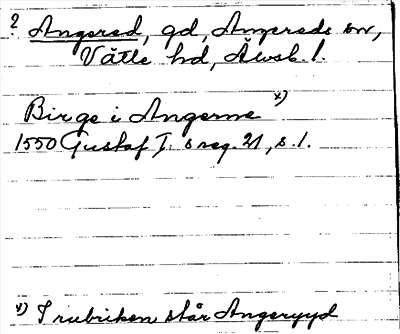 ? Angered, gd, Angereds sn,
Vättle hd, Älvsb. l.
Birge i Angerme x)
1550 Gustaf I: s reg. 21, s. 1.
x) I rubriken står Angeryyd